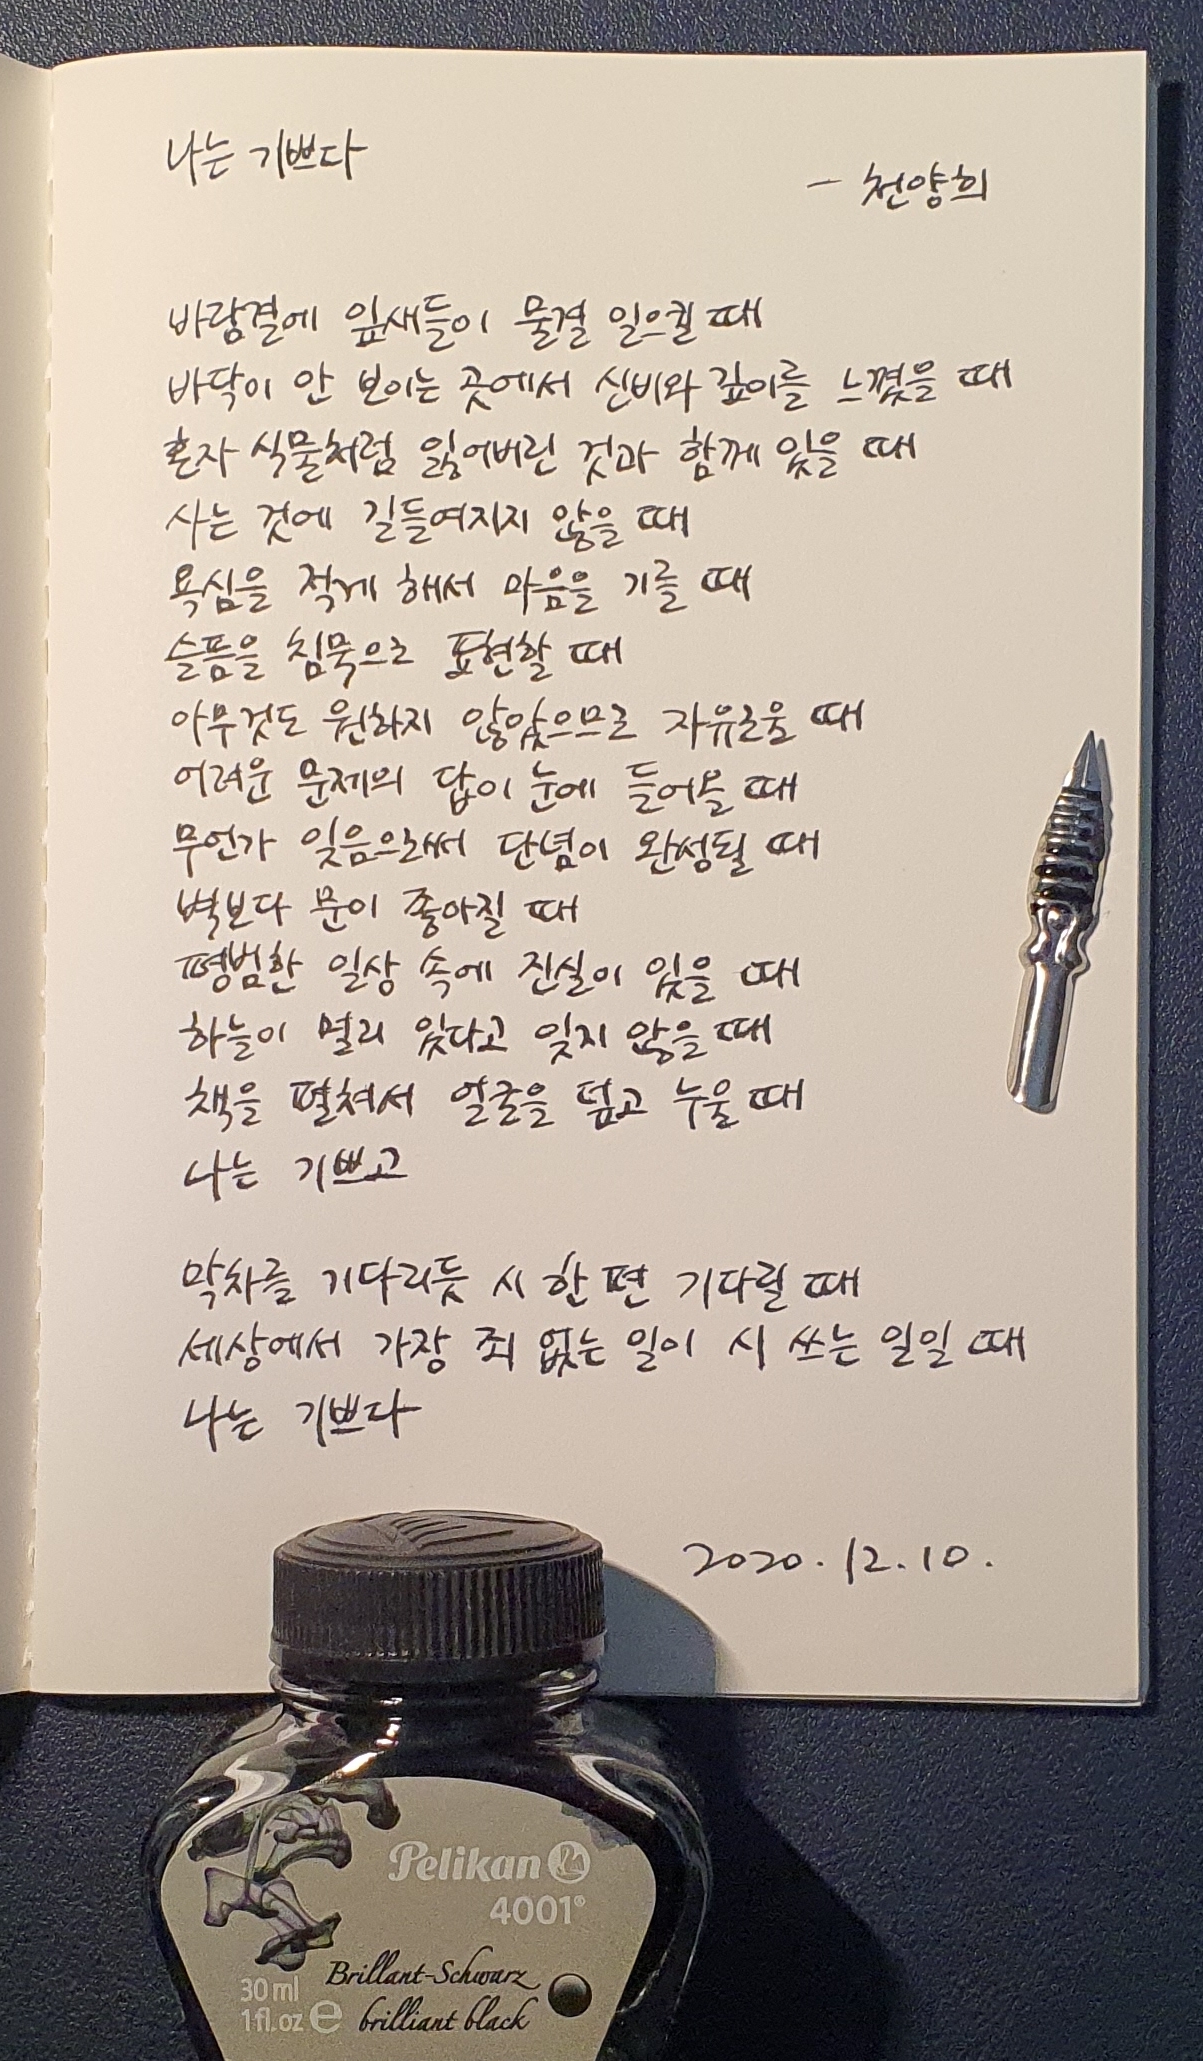 나는 기쁘다
- 천양희
바람결에 잎새들이 물결 일으킬 때
바닥이 안 보이는 곳에서 신비와 깊이를 느꼈을 때
혼자 식물처럼 잃어버린 것과 함께 있을 때
사는 것에 길들여지지 않을 때
욕심을 적게 해서 마음을 기를 때
슬픔을 침묵으로 표현할 때
아무것도 원하지 않았으므로 자유로울 때
어려운 문제의 답이 눈에 들어올 때
무언가 잊음으로써 단념이 완성될 때
벽보다 문이 좋아질 때
평범한 일상 속에 진실이 있을 때
하늘이 멀리 있다고 잊지 않을 때
책을 펼쳐서 얼굴을 덮고 누울 때
나는 기쁘고
막차를 기다리듯 시 한 편 기다릴 때
세상에서 가장 죄 없는 일이 시 쓰는 일일 때
나는 기쁘다
2020.12.10.
Pelikan
4001®
Brillant-Schwarz
brilliant black
30 ml
1 fl.oz e